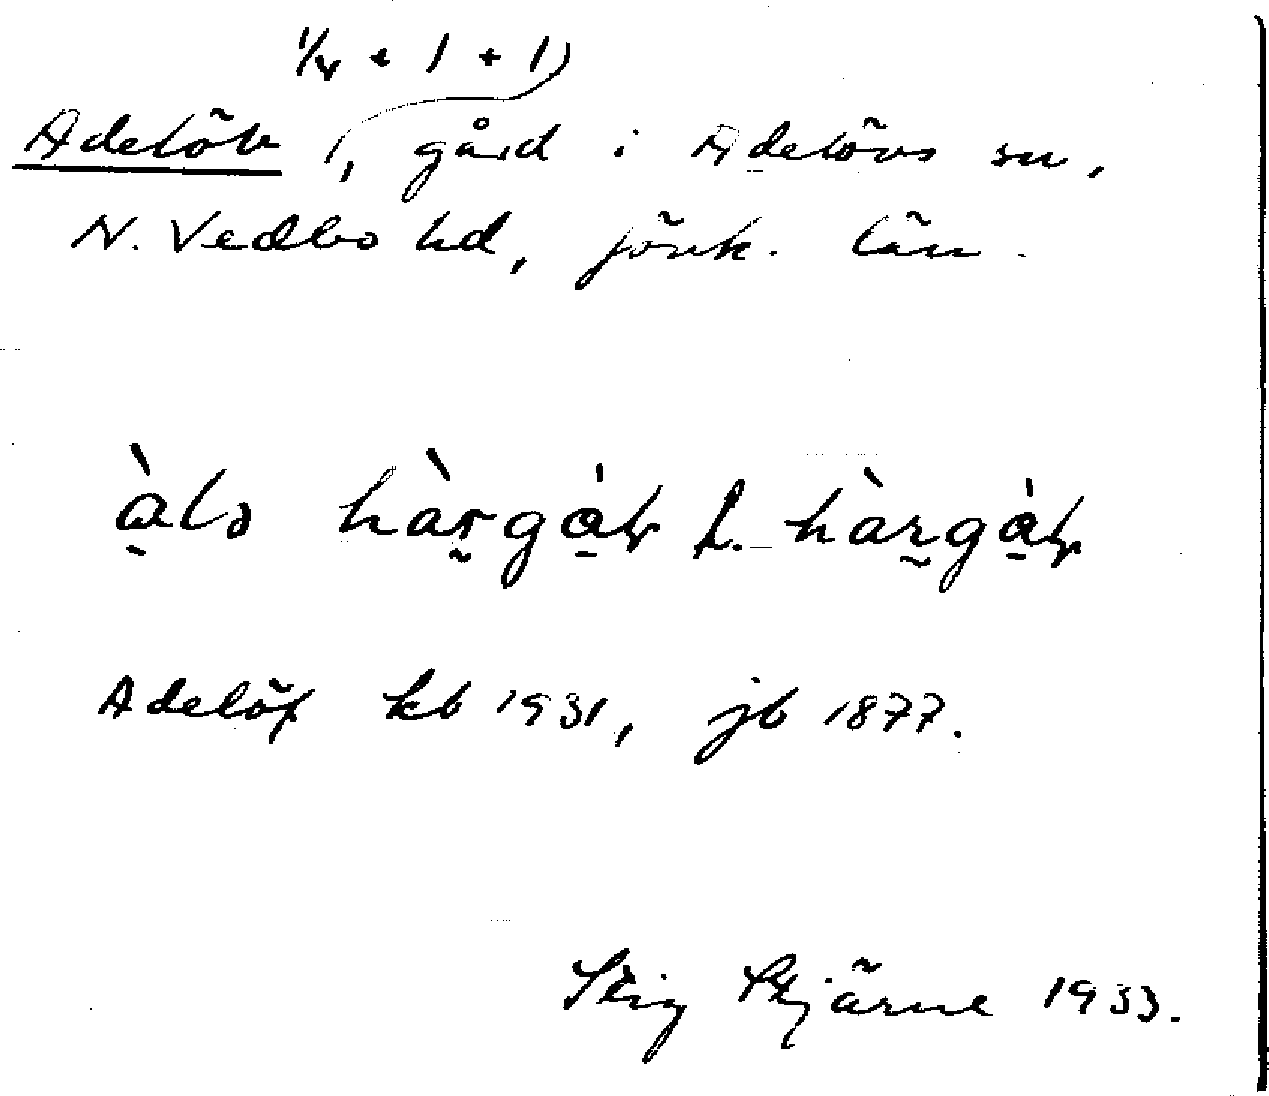 1/4 + 1 + 1)
Adelöv 1, gård i Adelövs sn,
N. Vedbo hd, Jönk. län.
hàrgάv l. hàrgάv
Adelöf kb 1931, jb 1877.
Stig Stjärne 1933.